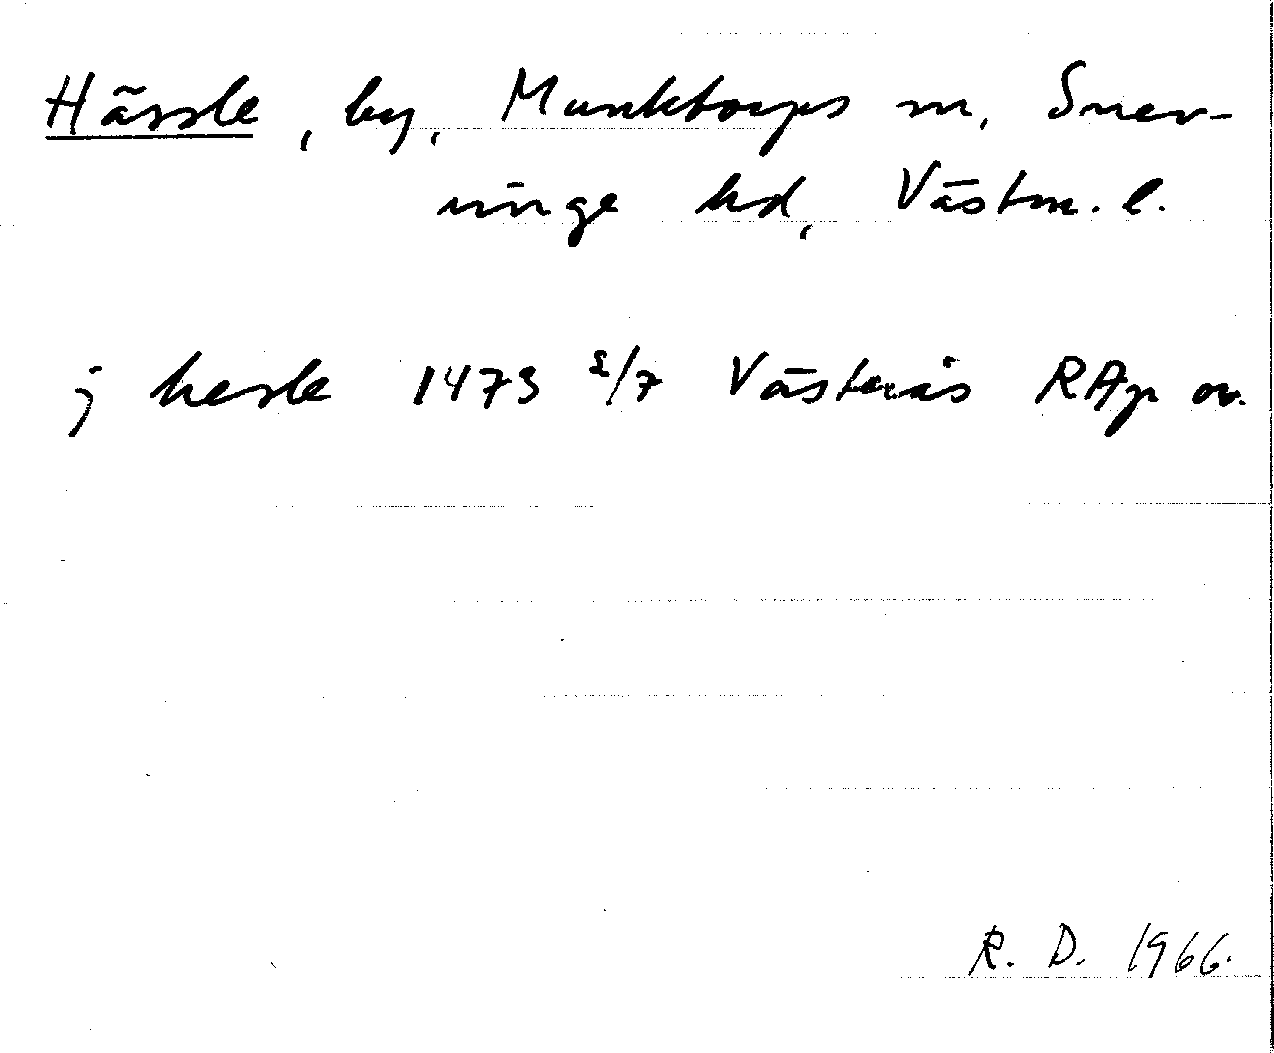 Hässle, by, Munktorps sn, Snev-
ringe hd, Västm. l.
j hesle 1473 2/7 Västerås RAp or.
R. D. 1966.